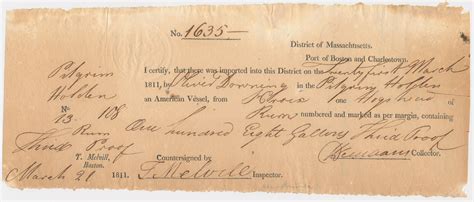 No. 1635
District of Massachusetts.
Port of Boston and Charlestown.
Pilgrim
Holden
No
13. 108
Rum
Third Proof
I certify, that there was imported into this District on the Twenty first March
1811, by Oliver Downing in the Pilgrim Holden
an American Vessel, from St Croix one Hogshead of
Rum numbered and marked as per margin, containing
One hundred Eight Gallons Third Proof
T. Melvill,
Boston.
Countersigned by
Collector.
March 21 1811. T Melvill Inspector.